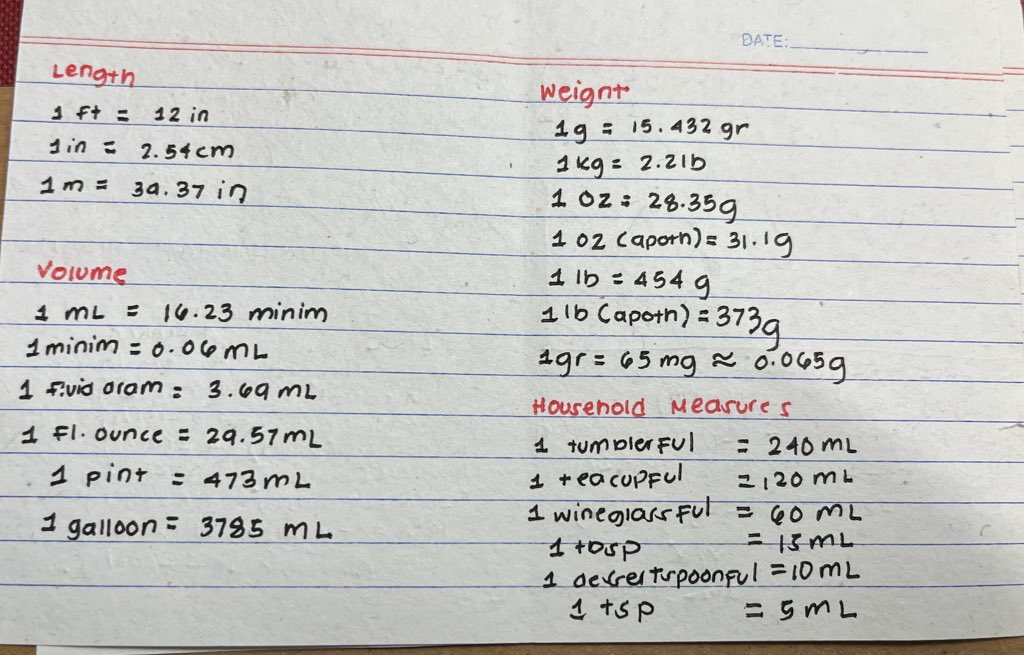 DATE:
Length
1 ft = 12 in
1 in = 2.54cm
1 m = 39.37 in
Volume
1 mL = 16.23 minim
1 minim = 0.06 mL
1 fluid dram = 3.69 mL
1 Fl. ounce = 29.57mL
1 pint = 473 mL
1 galloon = 3785 mL
Weight
1g = 15.432 gr
1 kg = 2.2lb
1 oz = 28.35g
1 oz (apoth) = 31.1g
1 lb = 454 g
1 lb (apoth) = 373g
1gr = 65 mg ≈ 0.065g
Household Measures
1 tumblerful = 240 mL
1 teacupful = 120 mL
1 wineglassful = 60 mL
1 tbsp = 15 mL
1 dessertspoonful = 10 mL
1 tsp = 5 mL